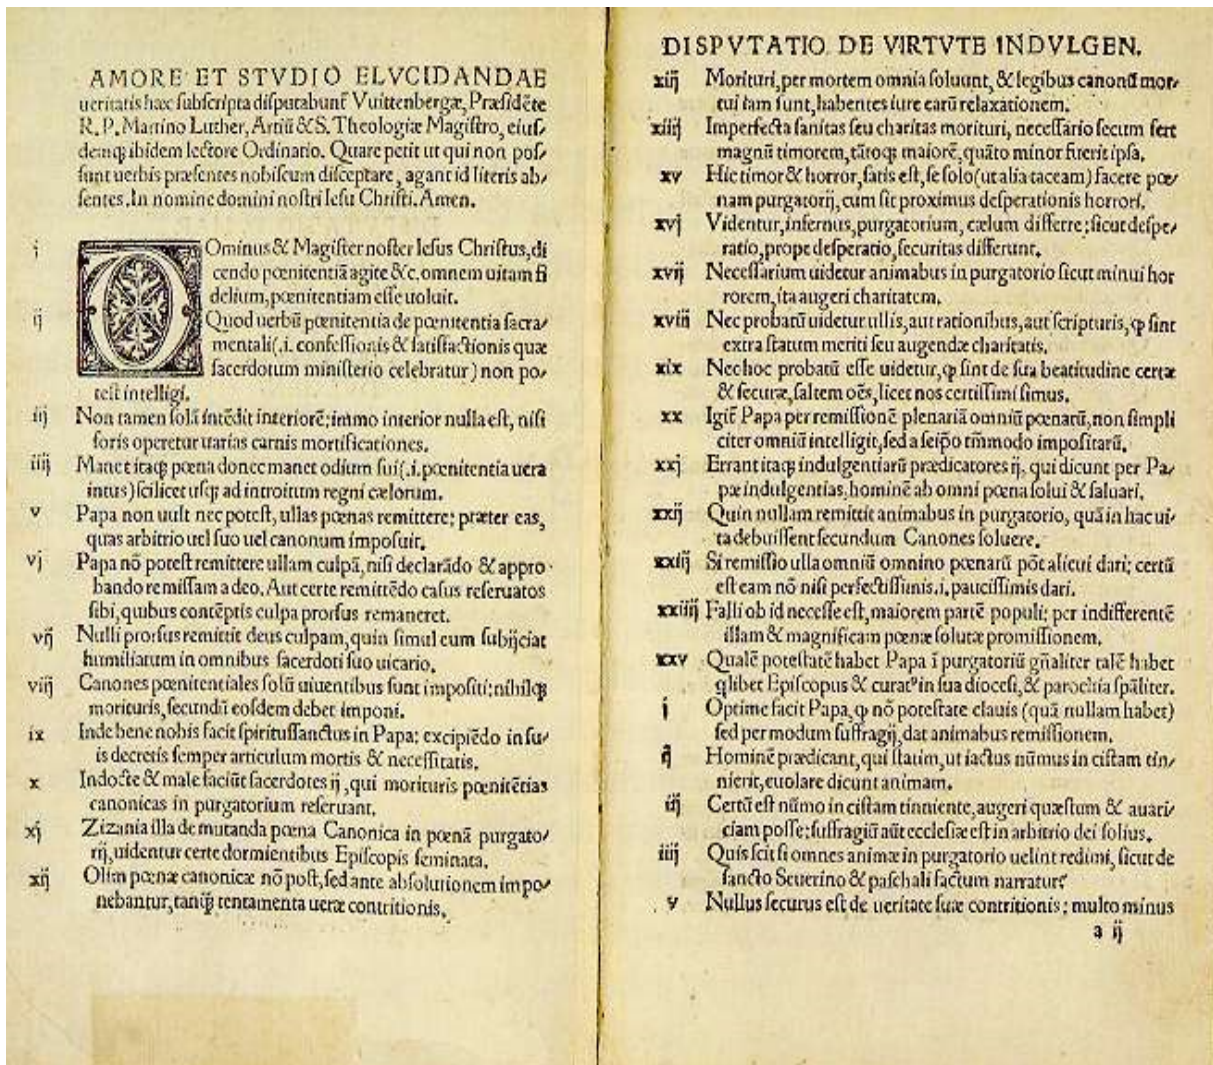 AMORE ET STVDIO ELVCIDANDAE
ueritatis hæc subscripta disputabunt᷑ Vuittenbergæ, Præsidẽte
R. P. Martino Luther, Artiũ & S. Theologiæ Magistro, eius/
demq; ibidem lectore Ordinario. Quare petit ut qui non pos/
sunt uerbis præsentes nobiscum disceptare, agant id literis ab/
sentes. In nomine domini nostri Iesu Christi. Amen.
i Ominus & Magister noster Iesus Christus, di
cendo pœnitentiã agite &c. omnem uitam fi
delium, pœnitentiam esse uoluit.
ij Quod uerbũ pœnitentia de pœnitentia sacra/
mentali (.i. confessionis & satisfactionis quæ
sacerdotum ministerio celebratur) non po/
test intelligi.
iij Non tamen solã intẽdit interiorẽ: immo interior nulla est, nisi
foris operetur uarias carnis mortificationes.
iiij Manet itaq; pœna donec manet odium sui (.i. pœnitentia uera
intus) scilicet usq; ad introitum regni cælorum.
v Papa non uult nec potest, ullas pœnas remittere: præter eas,
quas arbitrio uel suo uel canonum imposuit.
vj Papa nõ potest remittere ullam culpã, nisi declarãdo & appro
bando remissam a deo. Aut certe remittẽdo casus reseruatos
sibi, quibus contẽptis culpa prorsus remaneret.
vij Nulli prorsus remittit deus culpam, quin simul eum subijciat
humiliatum in omnibus sacerdoti suo uicario.
viij Canones pœnitentiales solũ uiuentibus sunt impositi: nihilq;
morituris, secundũ eosdem debet imponi.
ix Inde bene nobis facit spiritussanctus in Papa: excipiẽdo in su/
is decretis semper articulum mortis & necessitatis.
x Indocte & male faciũt sacerdotes ij, qui morituris pœnitẽtias
canonicas in purgatorium reseruant.
xj Zizania illa de mutanda pœna Canonica in pœnã purgato/
rij, uidentur certe dormientibus Episcopis seminata.
xij Olim pœnæ canonicæ nõ post, sed ante absolutionem impo/
nebantur, tanq̃ tentamenta ueræ contritionis.
DISPVTATIO DE VIRTVTE INDVLGEN.
xiij Morituri, per mortem omnia soluunt, & legibus canonũ mor/
tui iam sunt, habentes iure earũ relaxationem.
xiiij Imperfecta sanitas seu charitas morituri, necessario secum fert
magnũ timorem, tãtoq; maiorẽ, quãto minor fuerit ipsa.
xv Hic timor & horror, satis est, se solo (ut alia taceam) facere pœ/
nam purgatorij, cum sit proximus desperationis horrori.
xvj Videntur, infernus, purgatorium, cælum differre: sicut despe/
ratio, prope desperatio, securitas differunt.
xvij Necessarium uidetur animabus in purgatorio sicut minui hor
rorem, ita augeri charitatem.
xviij Nec probatũ uidetur ullis, aut rationibus, aut scripturis, ꝙ sint
extra statum meriti seu augendæ charitatis.
xix Nec hoc probatũ esse uidetur, ꝙ sint de sua beatitudine certæ
& securæ, saltem oẽs, licet nos certissimi simus.
xx Igit᷑ Papa per remissionẽ plenariã omniũ pœnarũ, non simpli
citer omniũ intelligit, sed a seip̃o tm̃modo impositarũ.
xxj Errant itaq; indulgentiarũ prædicatores ij, qui dicunt per Pa/
pæ indulgentias, hominẽ ab omni pœna solui & saluari.
xxij Quin nullam remittit animabus in purgatorio, quã in hac ui/
ta debuissent secundum Canones soluere.
xxiij Si remissio ulla omniũ omnino pœnarũ põt alicui dari: certũ
est eam nõ nisi perfectissimis .i. paucissimis dari.
xxiiij Falli ob id necesse est, maiorem partẽ populi: per indifferentẽ
illam & magnificam pœnæ solutæ promissionem.
xxv Qualẽ potestatẽ habet Papa ĩ purgatoriũ gñaliter talẽ habet
q̃libet Episcopus & curatꝰ in sua diocesi, & parochia sp̃aliter.
i Optime facit Papa, ꝙ nõ potestate clauis (quã nullam habet)
sed per modum suffragij, dat animabus remissionem.
ij Hominẽ prædicant, qui statim, ut iactus nũmus in cistam tin/
nierit, euolare dicunt animam.
iij Certũ est nũmo in cistam tinniente, augeri quæstum & auari/
ciam posse: suffragiũ aũt ecclesiæ est in arbitrio dei solius.
iiij Quis scit si omnes animæ in purgatorio uelint redimi, sicut de
sancto Seuerino & paschali factum narratur?
v Nullus securus est de ueritate suæ contritionis: multo minus
a ij